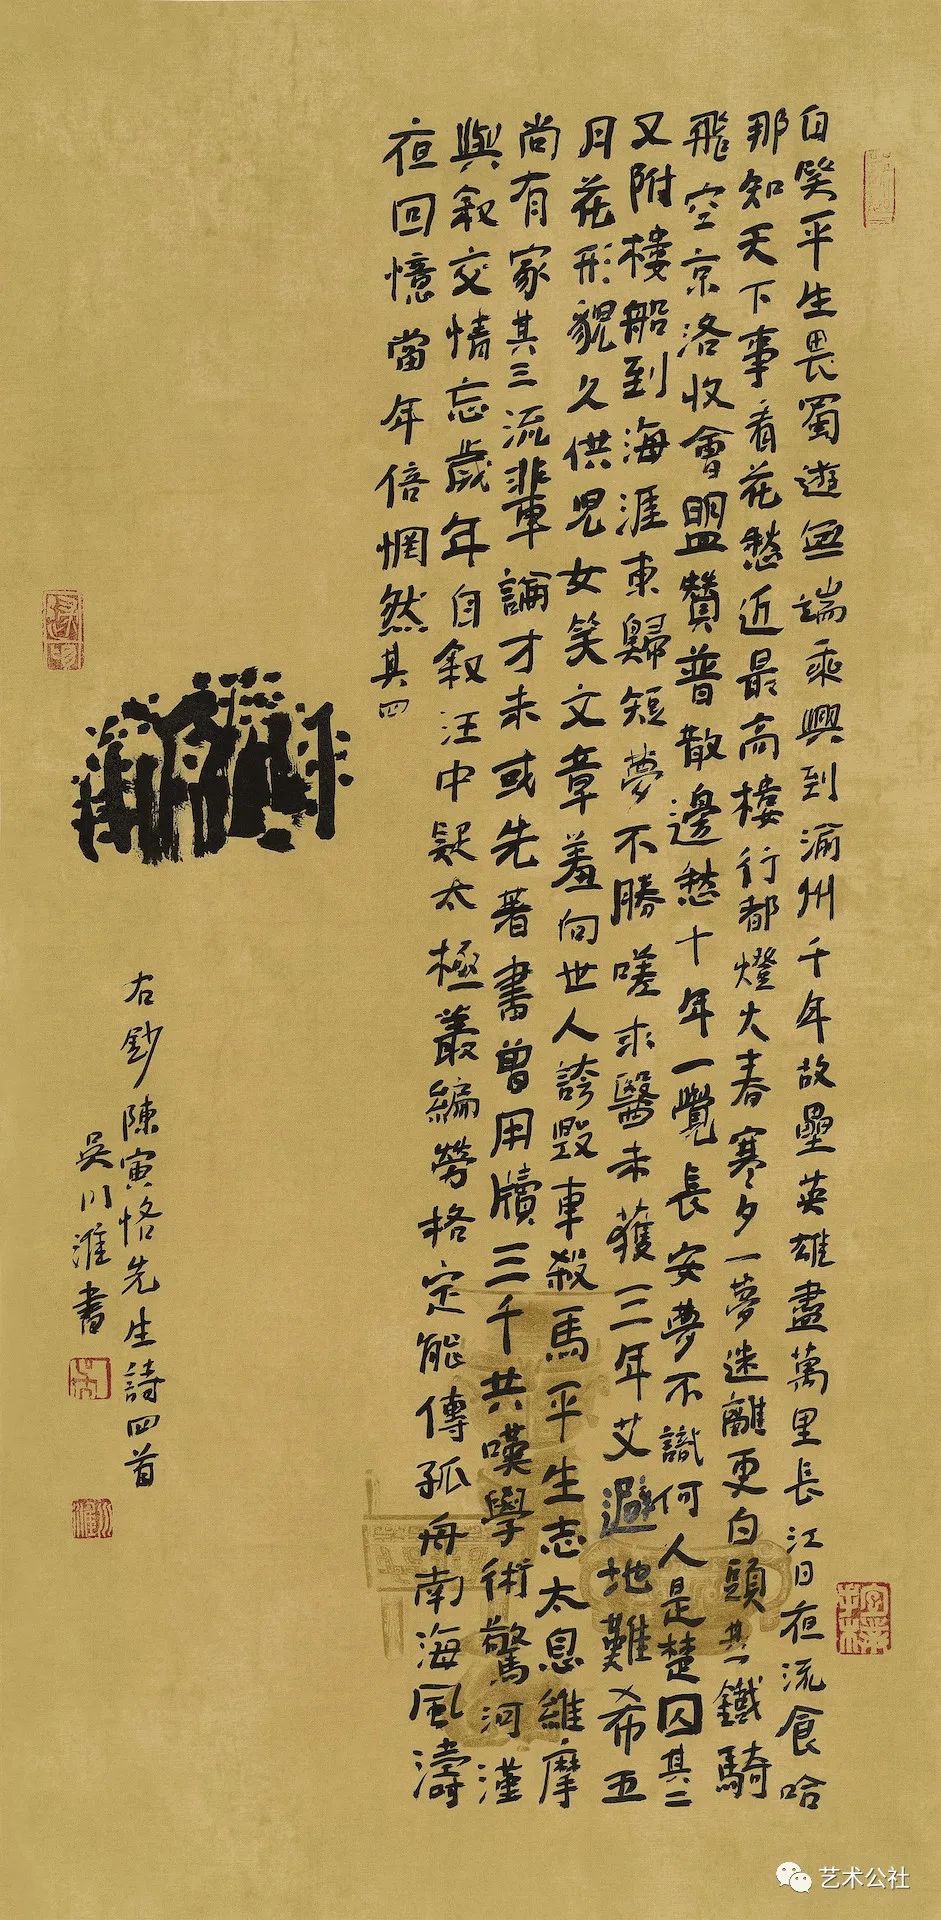 自笑平生畏蜀遊無端乘興到渝州千年故壘英雄盡萬里長江日夜流食哈
那知天下事看花愁近最高樓行都燈火春寒夕一夢迷離更白頭其一鐵騎
飛空京洛收會盟贊普散邊愁十年一覺長安夢不識何人是楚囚其二
又附樓船到海涯東歸短夢不勝嗟求醫未獲三年艾避地難希五
月花形貌久供兒女笑文章羞向世人誇毀車殺馬平生志太息維摩
尚有家其三流輩論才未或先著書曾用牘三千共嘆學術驚河漢
與敘交情忘歲年自敘汪中疑太極叢編勞格定能傳孤舟南海風濤
夜回憶當年倍惘然其四
右鈔陳寅恪先生詩四首
吳川淮書
艺术公社